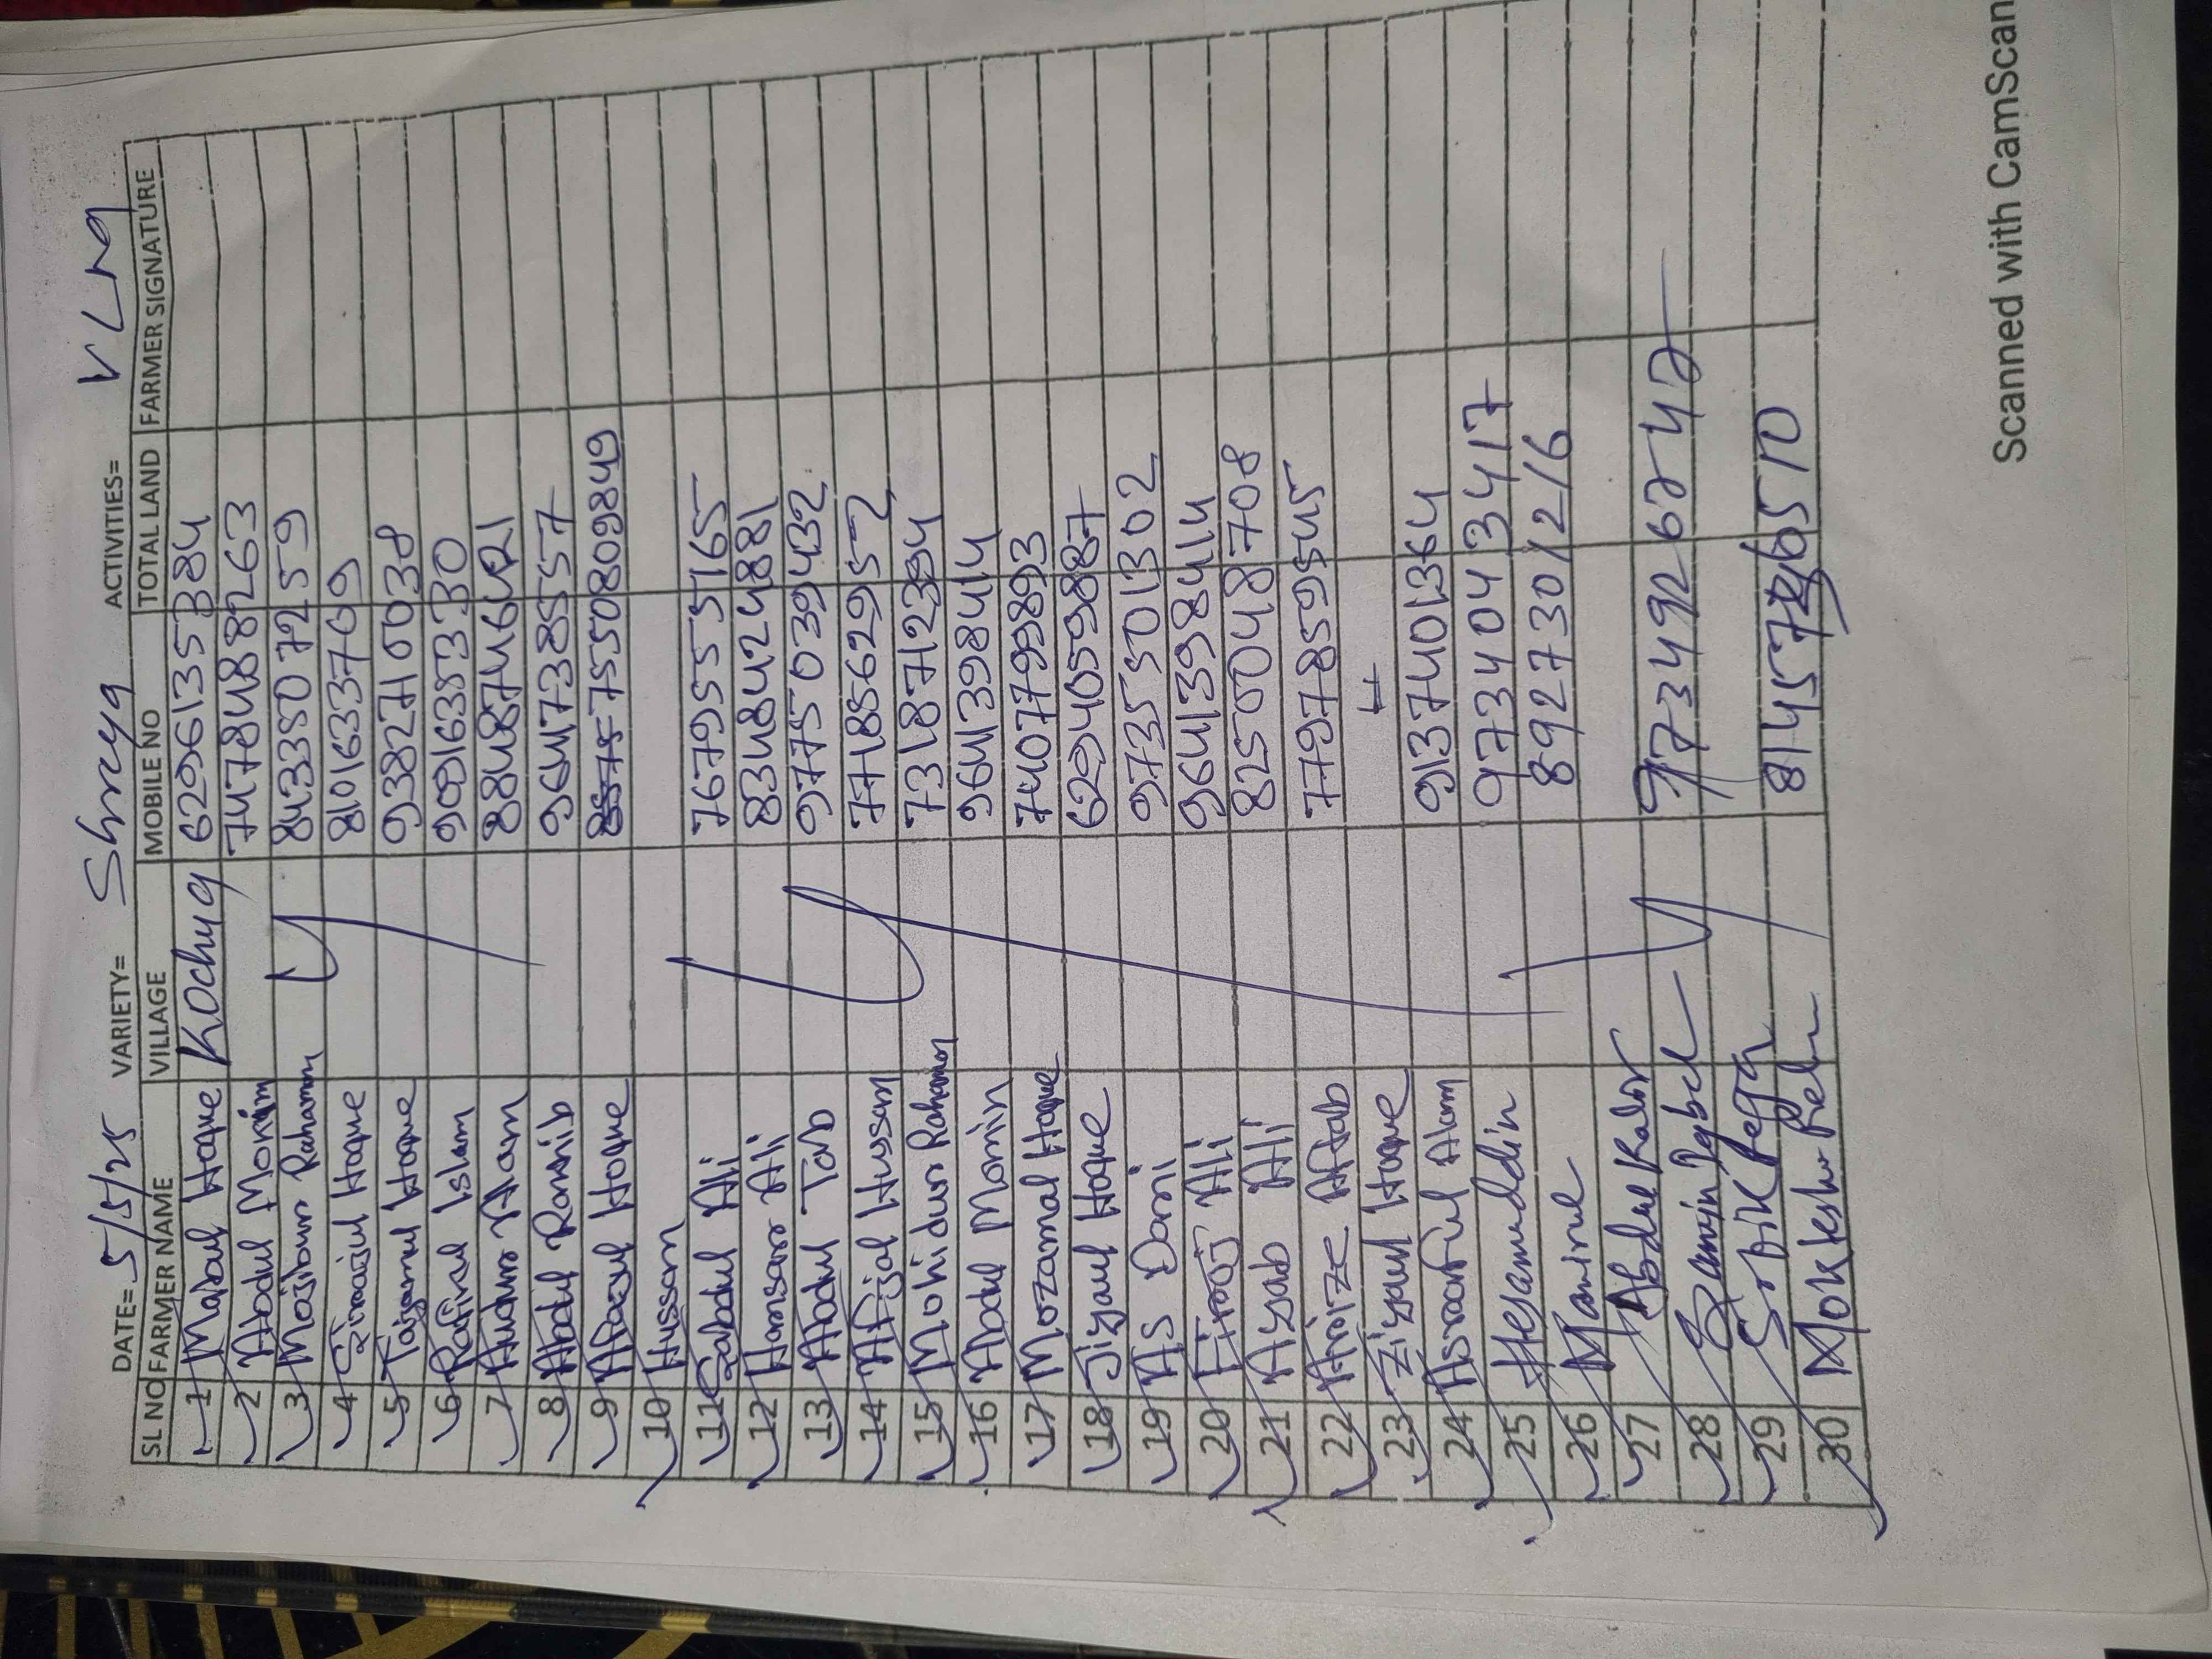 DATE= 5/5/25 VARIETY= Shreya ACTIVITIES= VLM
SL NO FARMER NAME VILLAGE MOBILE NO TOTAL LAND FARMER SIGNATURE
1 Mabul Hoque Kochua 6296135384
2 Abdul Momin 7478488263
3 Mojibur Rahaman 8433507259
4 Sirajul Hoque 8101633709
5 Taijamul Hoque 9382710038
6 Rafikul Islam
7 Alam
8 Abdul 9641738557
9 Hoque 7550809849
10 Hussan
11 Sabdul Ali 7679555165
12 Ansar Ali 8348424881
13 Abdul Tab 9775039432
14 Afijal Husan 7718562952
15 Mohidur Rahaman
16 Abdul Momin 9641398414
17 Mozamal Hoque 7407799893
18 Jiyaul Hoque 6294059887
19 As Dami 9735501302
20 Firoj Ali 9641398414
21 Ayub Ali 8250048708
22 Aftab 7797859545
23 Ziyaul Hoque
24 Asraful Alam 9137401364
25 Hesamuddin 9734043417
26 Manirul 8927301216
27 Abdul Kalam
28 9734926242
29
30 81457 6510
Scanned with CamScan